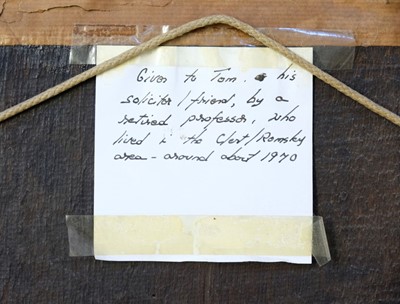 Given to Tom. his
solicitor/friend, by a
retired professor, who
lived in the Clent/Romsley
area - around about 1970